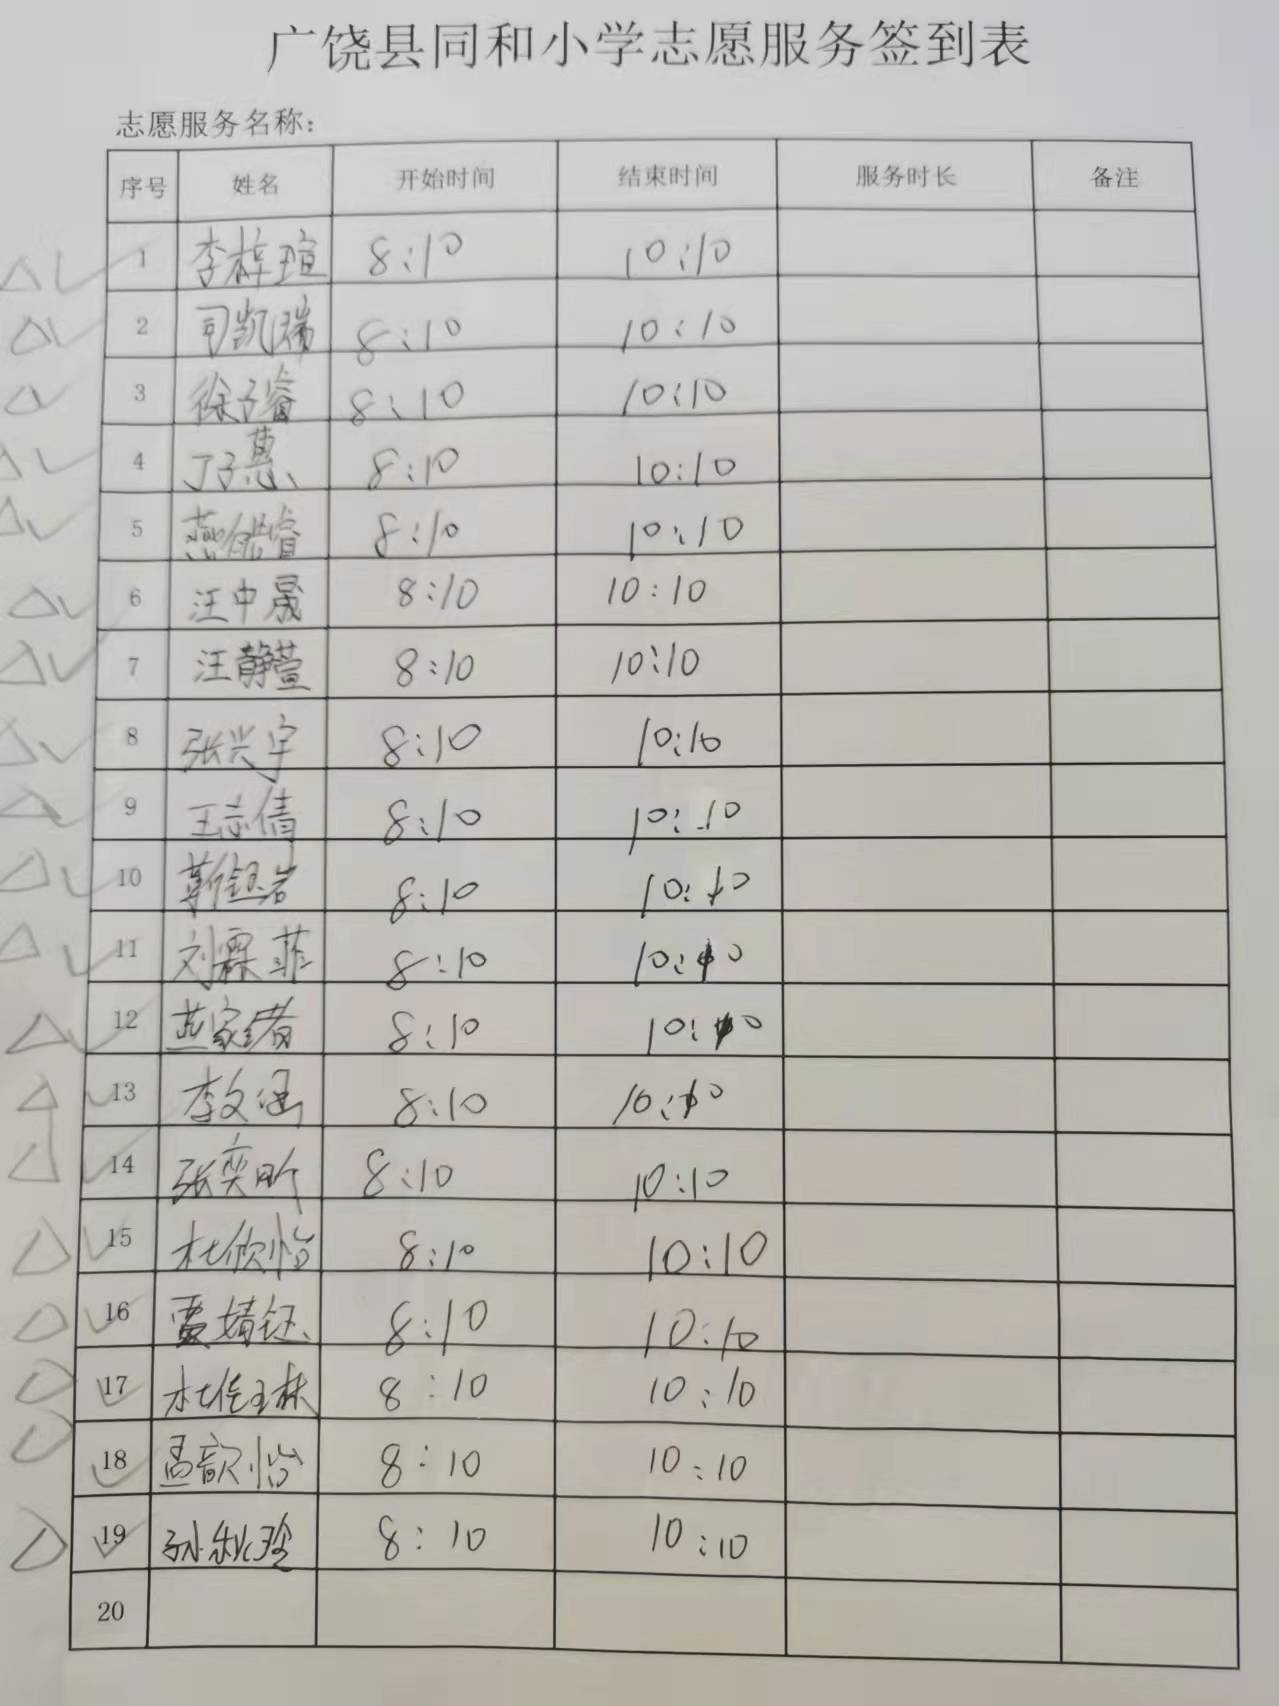 广饶县同和小学志愿服务签到表
志愿服务名称：
序号 姓名 开始时间 结束时间 服务时长 备注
1 李梓瑄 8:10 10:10
2 司凯瑞 8:10 10:10
3 徐子睿 8:10 10:10
4 丁子惠 8:10 10:10
5 燕 睿 8:10 10:10
6 汪中晟 8:10 10:10
7 汪静萱 8:10 10:10
8 张兴宇 8:10 10:10
9 王志倩 8:10 10:10
10 靳钰岩 8:10 10:10
11 刘霖菲 8:10 10:10
12 燕家绪 8:10 10:10
13 李文涵 8:10 10:10
14 张奕昕 8:10 10:10
15 杜欣怡 8:10 10:10
16 贾婧钰 8:10 10:10
17 杜佳琳 8:10 10:10
18 孟歆怡 8:10 10:10
19 孙秋玲 8:10 10:10
20